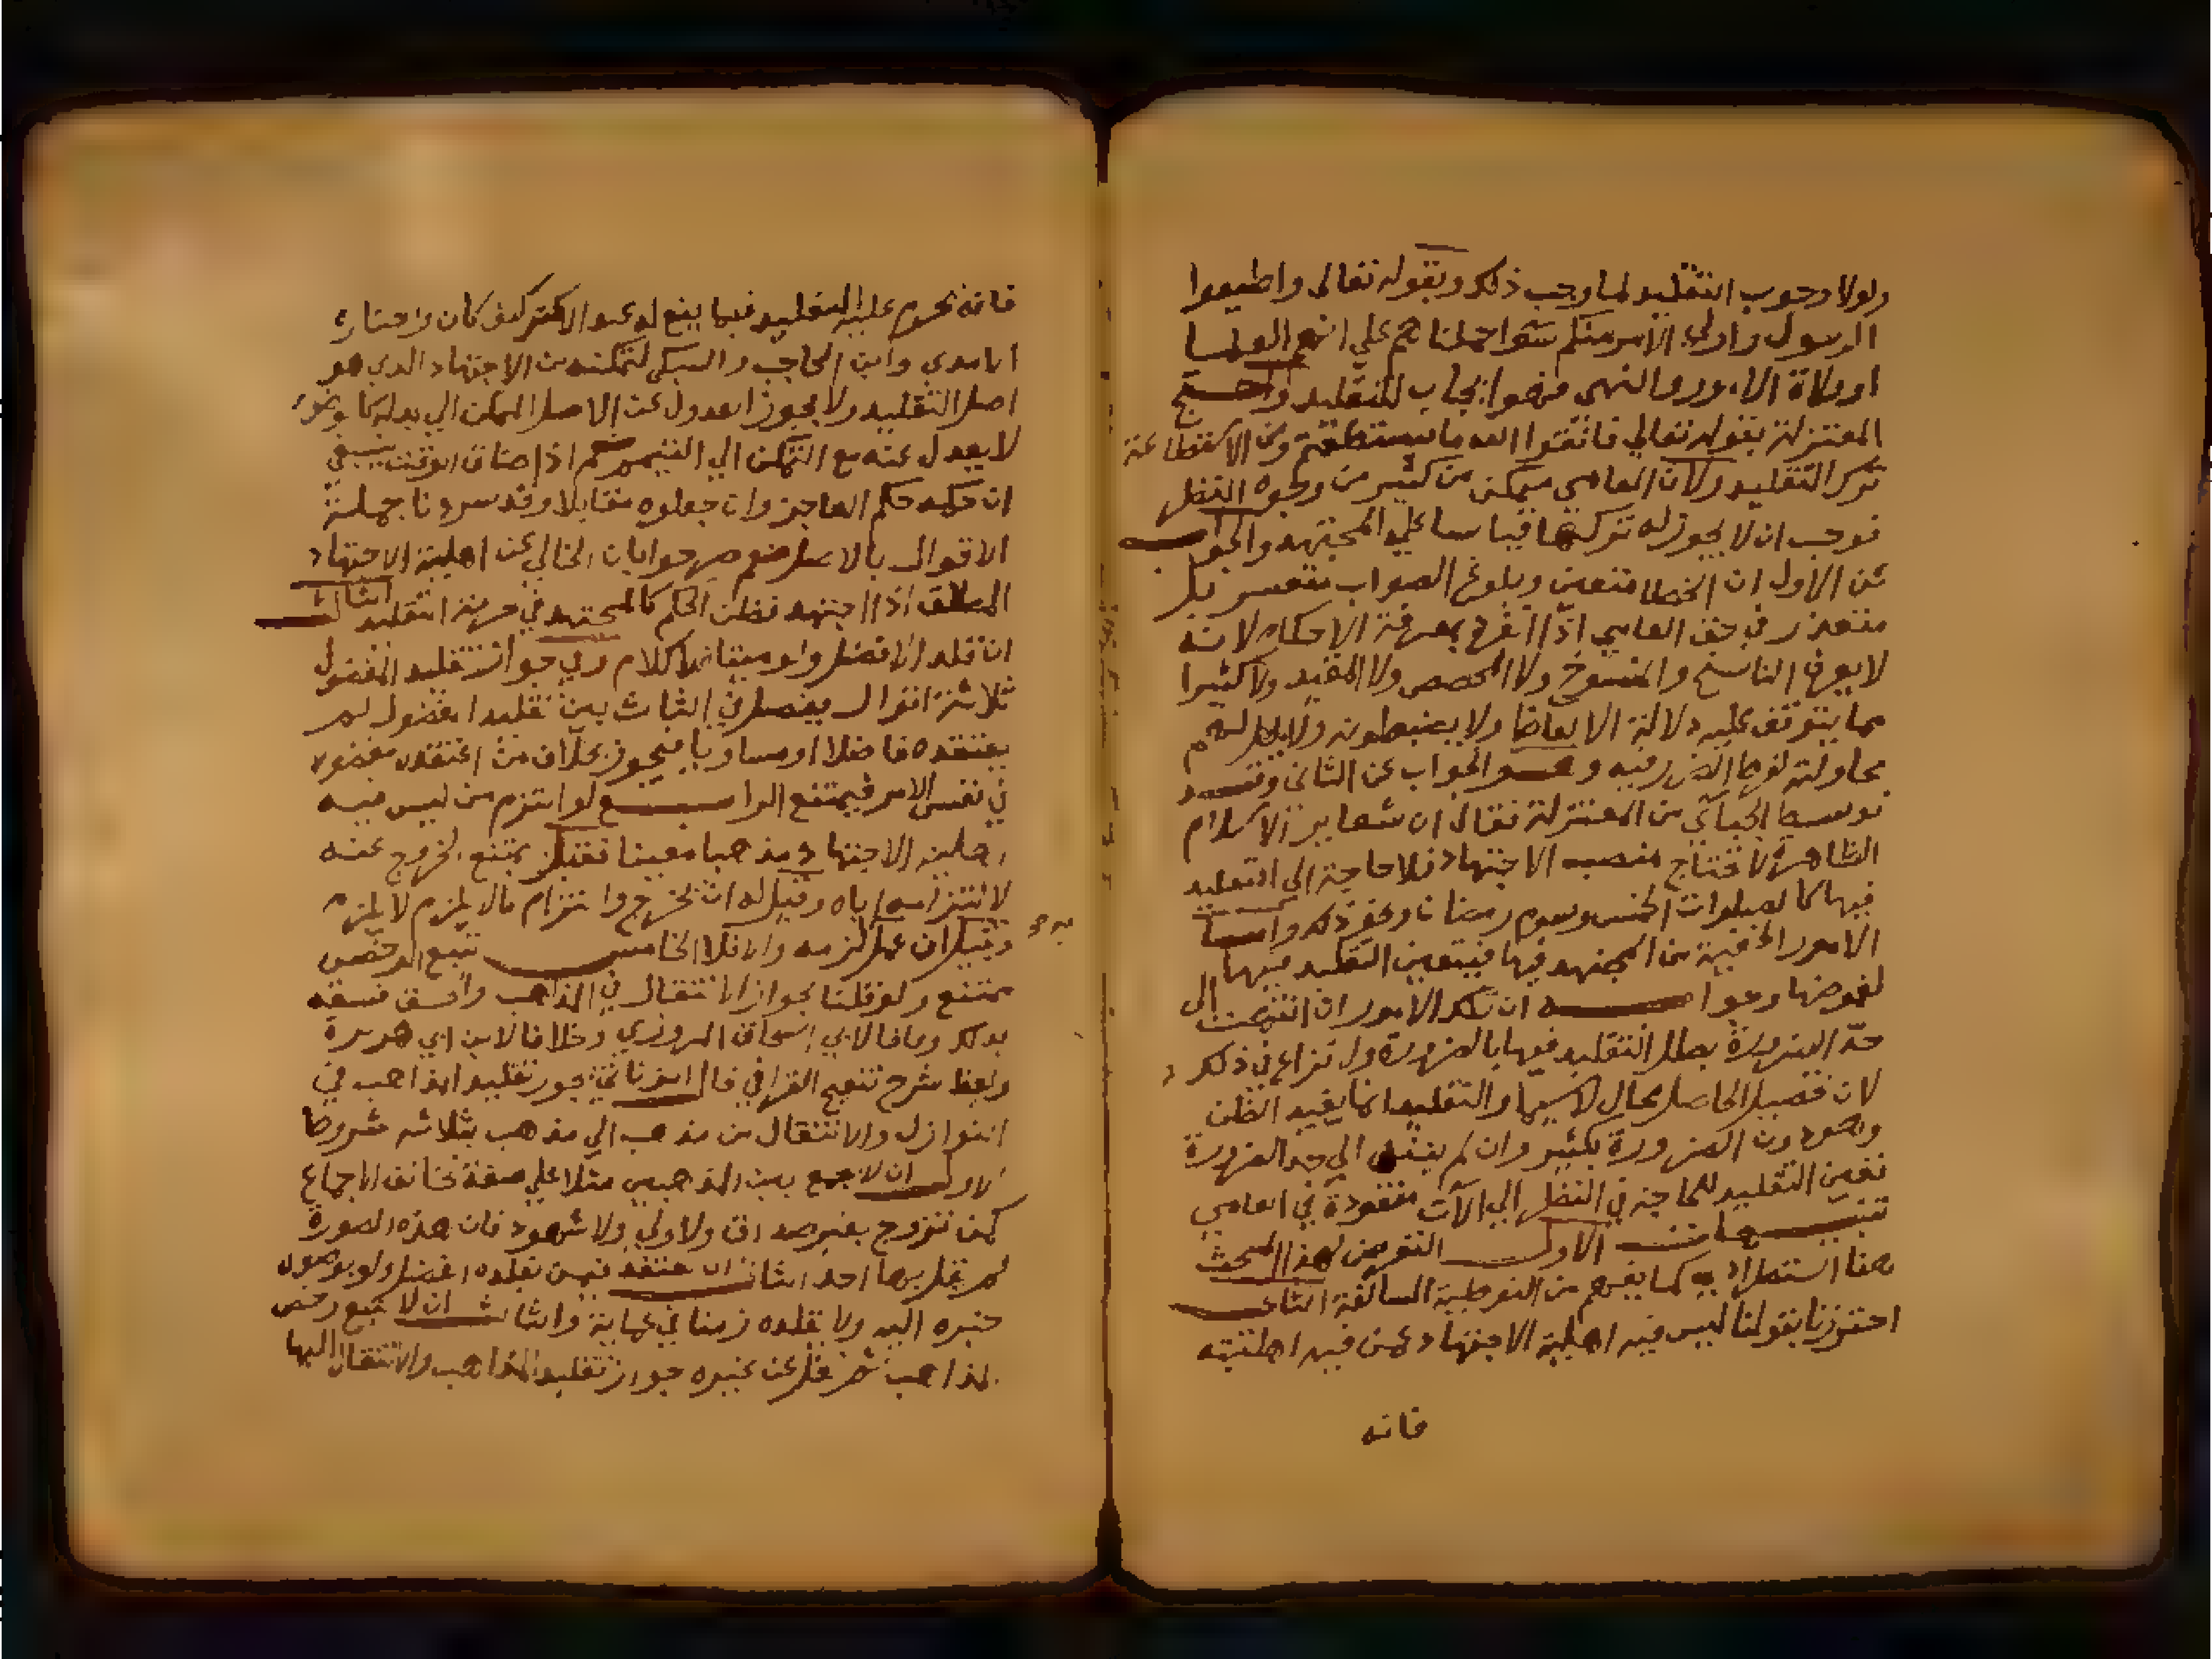 ولولا وجوب التقليد لما وجب ذلك وبقوله تعالى واطيعوا
الرسول واولي الامر منكم سوا حملناهم علي انهم العلما
او ولاة الامور والنهى فهو ايجاب للتقليد واحتج
المعتزلة بقوله تعالي فاتقوا الله ما استطعتم ومن الاستطاعة
ترك التقليد ولان العامي متمكن من كثير من وجوه النظر
فوجب ان لا يجوز له تركها قياسا علي المجتهد والجواب
عن الاول ان الخطا متعين وبلوغ الصواب متعسر بل
متعذر في حق العامي اذا انفرد بمعرفة الاحكام لانه
لا يعرف الناسخ والمنسوخ ولا المخصص ولا المقيد ولا كثيرا
مما يتوقف عليه دلالة الالفاظ ولا يضبطونه ولا يحل لهم
محاولته لفرط الغرر فيه وهو الجواب عن الثاني وقد
توسط الجبائي من المعتزلة فقال ان شعاير الاسلام
الظاهرة لا تحتاج منصب الاجتهاد فلا حاجة الى التقليد
فيها كالصلوات الخمس وصوم رمضان ونحو ذلك واما
الامور الخفية من المجتهد فيها فيتعين التقليد فيها
لغموضها وجوابه ان تلك الامور ان انتهت الى
حد الضرورة بطل التقليد فيها بالضرورة ولا نزاع في ذلك
لان تحصيل الحاصل محال لا سيما والتقليد انما يفيد الظن
وهو دون الضرورة بكثير وان لم ينته الي حد الضرورة
تعين التقليد للحاجة في النظر الي آلات مفقودة في العامي
تنبيهات الاول التعرض لهذا المبحث
هنا استطرادي كما يفهم من التوطية السالفة الثاني
احترزنا بقولنا ليس فيه اهلية الاجتهاد عمن فيه اهليته
فانه
فانه يحرم عليه التقليد فيما يقع له عند الاكثر كيف كان واختاره
الامدي وابن الحاجب والسبكي لتمكنه من الاجتهاد الذي هو
اصل التقليد ولا يجوز العدول عن الاصل الممكن الي بدله كالوضوء
لا يعدل عنه مع التمكن الي التيمم نعم اذا ضاق الوقت ينبغي
ان حكمه حكم العاجز وان جعلوه مقابلا وقد سردنا جملة
الاقوال بالاصل نعم صرحوا بان الخالي عن اهلية الاجتهاد
المطلق اذا اجتهد فظن الحكم كالمجتهد في حرمة التقليد الثالث
ان قلد الافضل واو ميتا فلا كلام وفي جواز تقليد المفضول
ثلاثة اقوال يفصل في الثالث بين تقليد المفضول لمن
يعتقده فاضلا او مساويا فيجوز بخلاف من اعتقده مفضولا
في نفس الامر فيمتنع الرابع لو التزم من ليس فيه
اهلية الاجتهاد مذهبا معينا فقيل يمتنع الخروج عنه
لالتزامه اياه وقيل له ان يخرج والتزام ما لا يلزم لا يلزم
وقيل ان عمل لزمه والا فلا الخامس تتبع الرخص
ممتنع ولو قلنا بجواز الانتقال في المذاهب وافسق فسقه
بذلك وفاقا لابي اسحاق المروزي وخلافا لابن ابي هريرة
ولفظ شرح تنقيح القرافي قال الزناتي يجوز تقليد المذاهب في
النوازل والانتقال من مذهب الي مذهب بثلاثه شروط
الاول ان لا يجمع بين المذهبين مثلا علي صفة تخالف الاجماع
كمن تزوج بغير صداق ولا ولي ولا شهود فان هذه الصورة
لم يقل بها احد الثاني ان يعتقد فيمن يقلده الفضل ولو بوصول
خبره اليه ولا يقلده زمنا في عماية والثالث ان لا يتبع رخص
المذاهب ثم نقل عن غيره جواز تقليد المذاهب والانتقال اليها